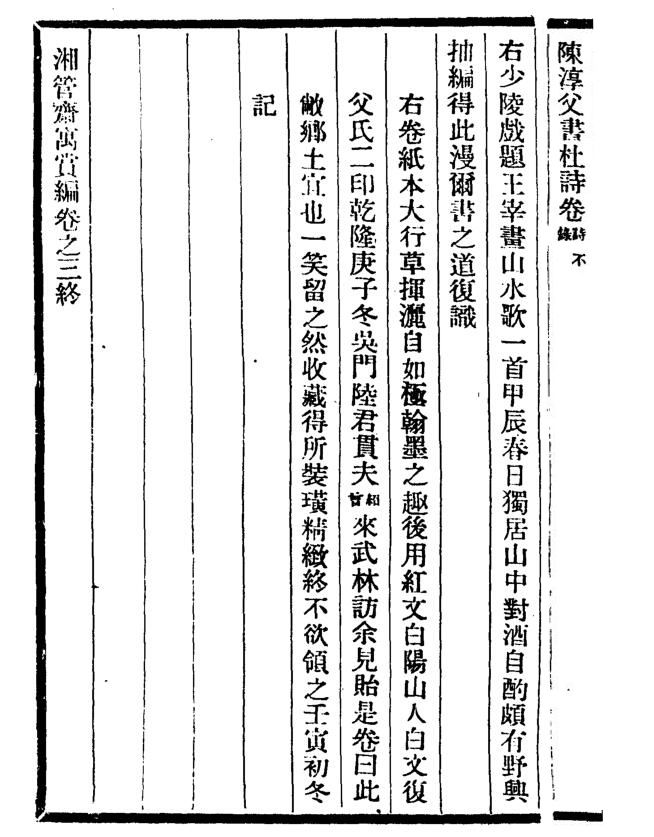 陳淳父書杜詩卷詩不錄
右少陵戲題王宰畫山水歌一首甲辰春日獨居山中對酒自酌頗有野興
抽編得此漫爾書之道復識
右卷紙本大行草揮灑自如極翰墨之趣後用紅文白陽山人白文復
父氏二印乾隆庚子冬吳門陸君貫夫紹曾來武林訪余見貽是卷曰此
敝鄉土宜也一笑留之然收藏得所裝璜精緻終不欲領之壬寅初冬
記
湘管齋寓賞編卷之三終